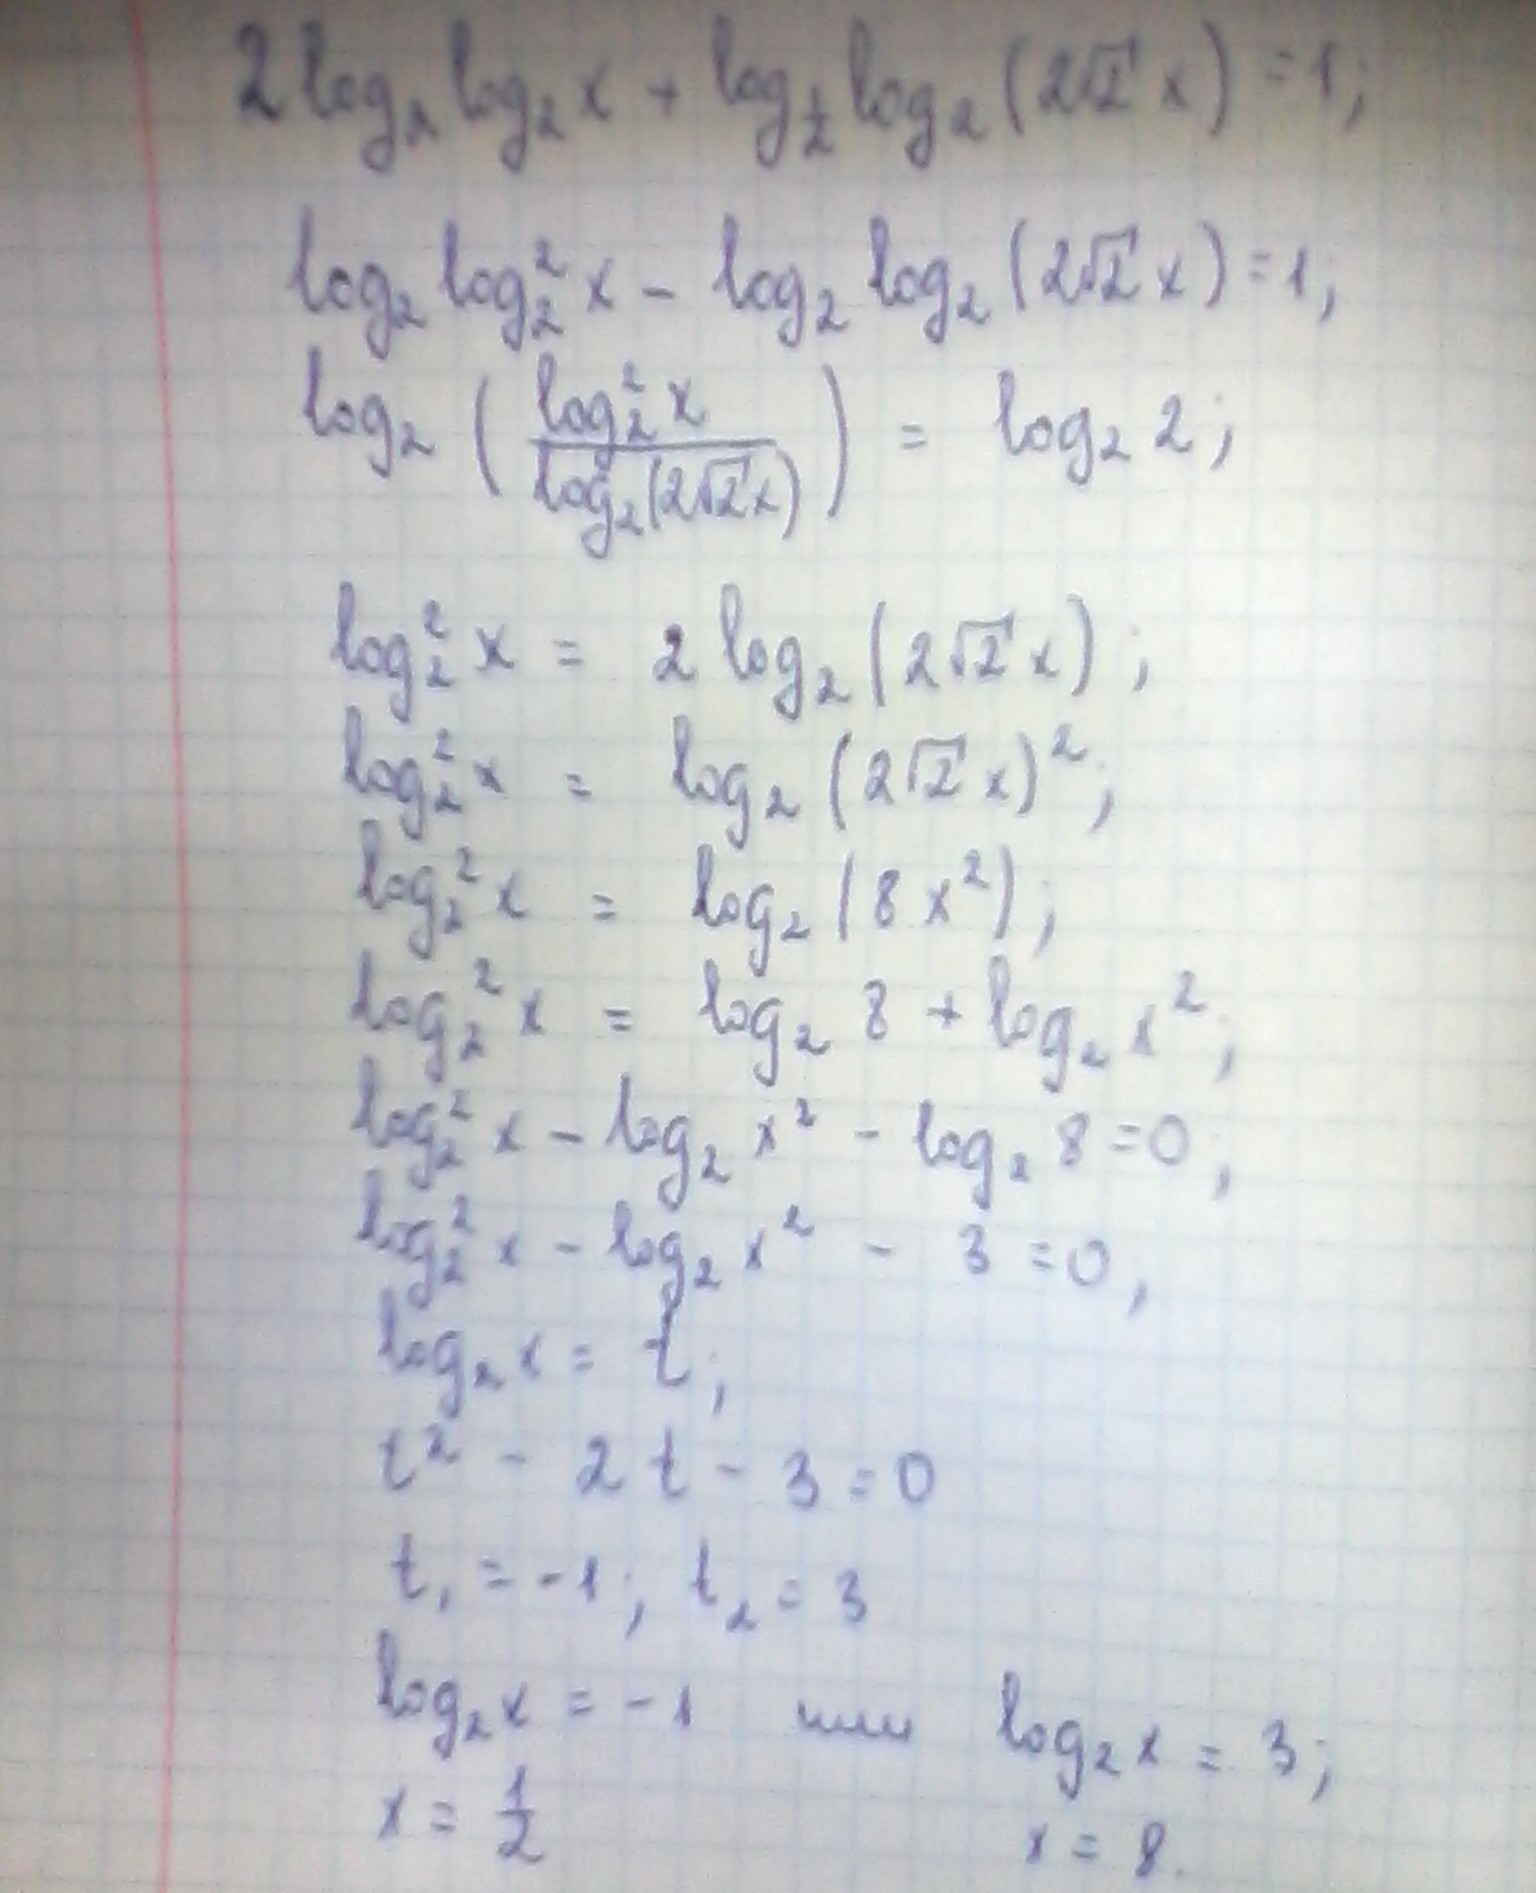 2 log₂ log₂ x + log_{1/2} log₂ (2√2 x) = 1;
log₂ log₂² x - log₂ log₂ (2√2 x) = 1;
log₂ ( log₂² x / log₂(2√2 x) ) = log₂ 2;
log₂² x = 2 log₂ (2√2 x);
log₂² x = log₂ (2√2 x)²;
log₂² x = log₂ (8x²);
log₂² x = log₂ 8 + log₂ x²;
log₂² x - log₂ x² - log₂ 8 = 0;
log₂² x - log₂ x² - 3 = 0,
log₂ x = t;
t² - 2t - 3 = 0
t₁ = -1; t₂ = 3
log₂ x = -1 или log₂ x = 3;
x = 1/2 x = 8.